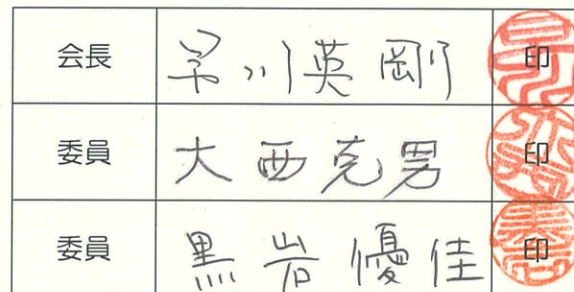 会長 早川英剛 印
委員 大西克男 印
委員 黒岩優佳 印